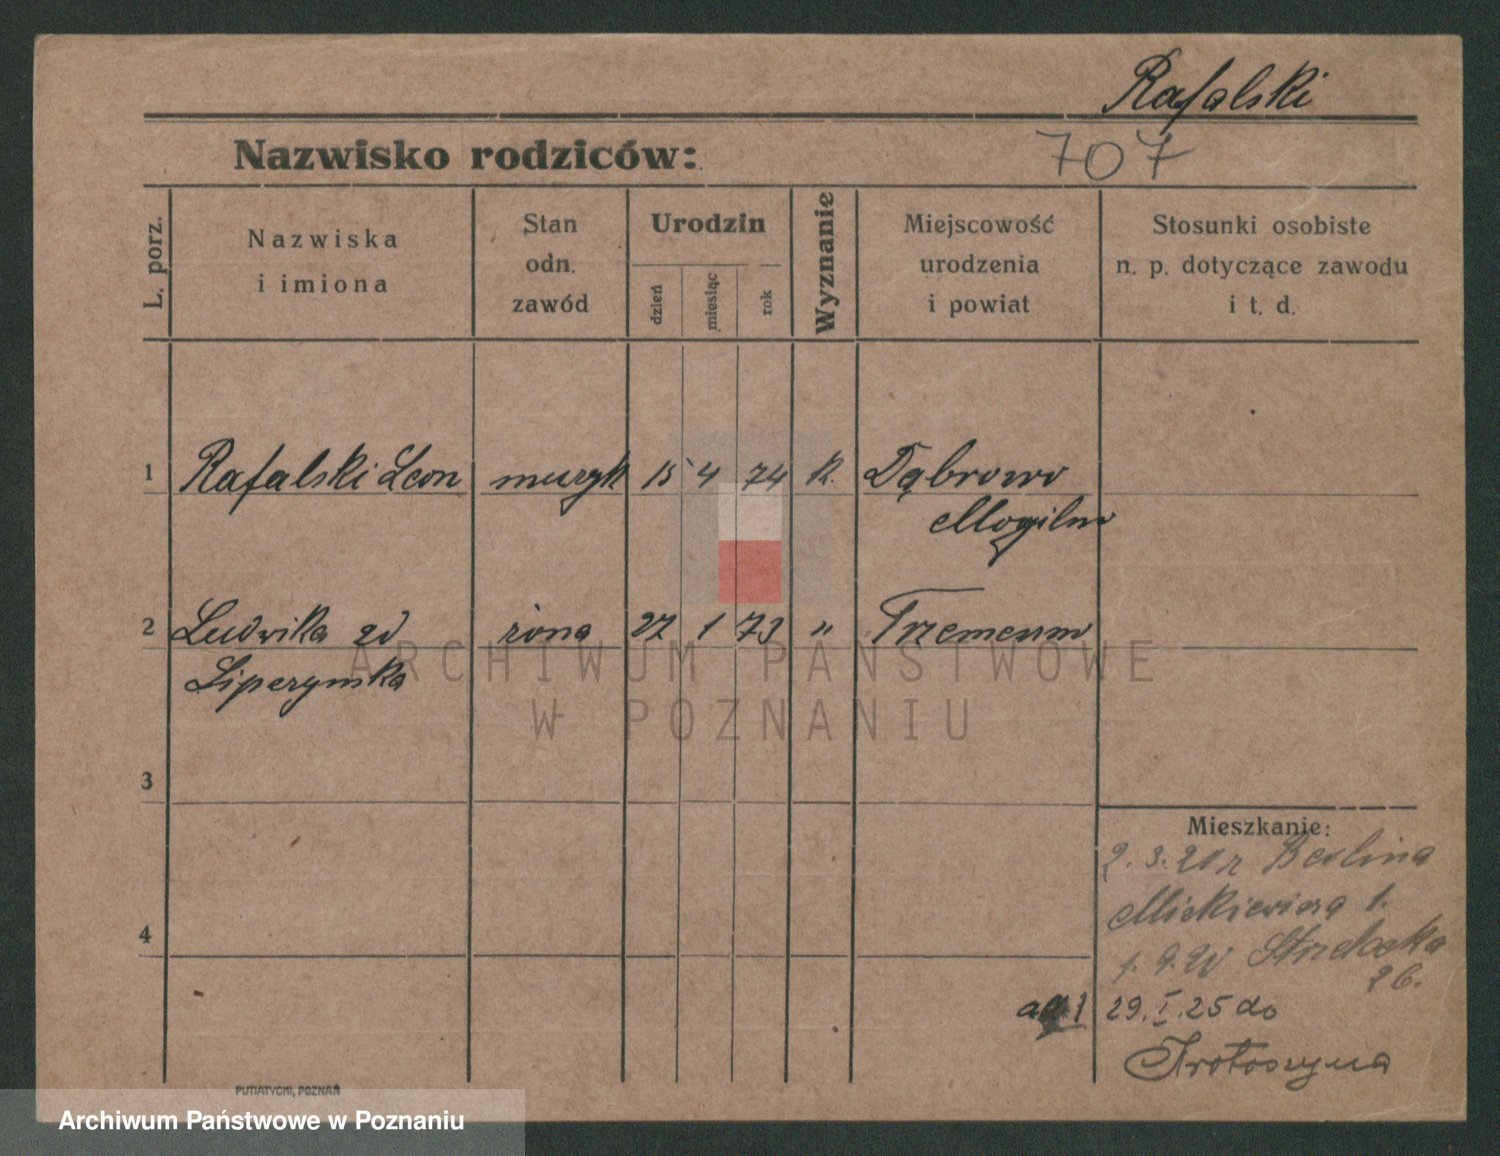 Rafalski
Nazwisko rodziców:
707
L. porz.
Nazwiska
i imiona
Stan
odn.
zawód
Urodzin
dzień
miesiąc
rok
Wyznanie
Miejscowość
urodzenia
i powiat
Stosunki osobiste
n. p. dotyczące zawodu
i t. d.
1 Rafalski Leon muzyk 15 4 74 K. Dąbrowo
Mogilno
2 Ludwika zd żona 27 1 73 " Trzemeszno
3
4
Mieszkanie:
2.3.20 z Berlina
Mickiewicza 1.
1.9.20 Strzelecka
26.
ad 1 29.I.25 do
Krotoszyna
PUTIATYCKI, POZNAŃ
ARCHIWUM PAŃSTWOWE
W POZNANIU
Archiwum Państwowe w Poznaniu